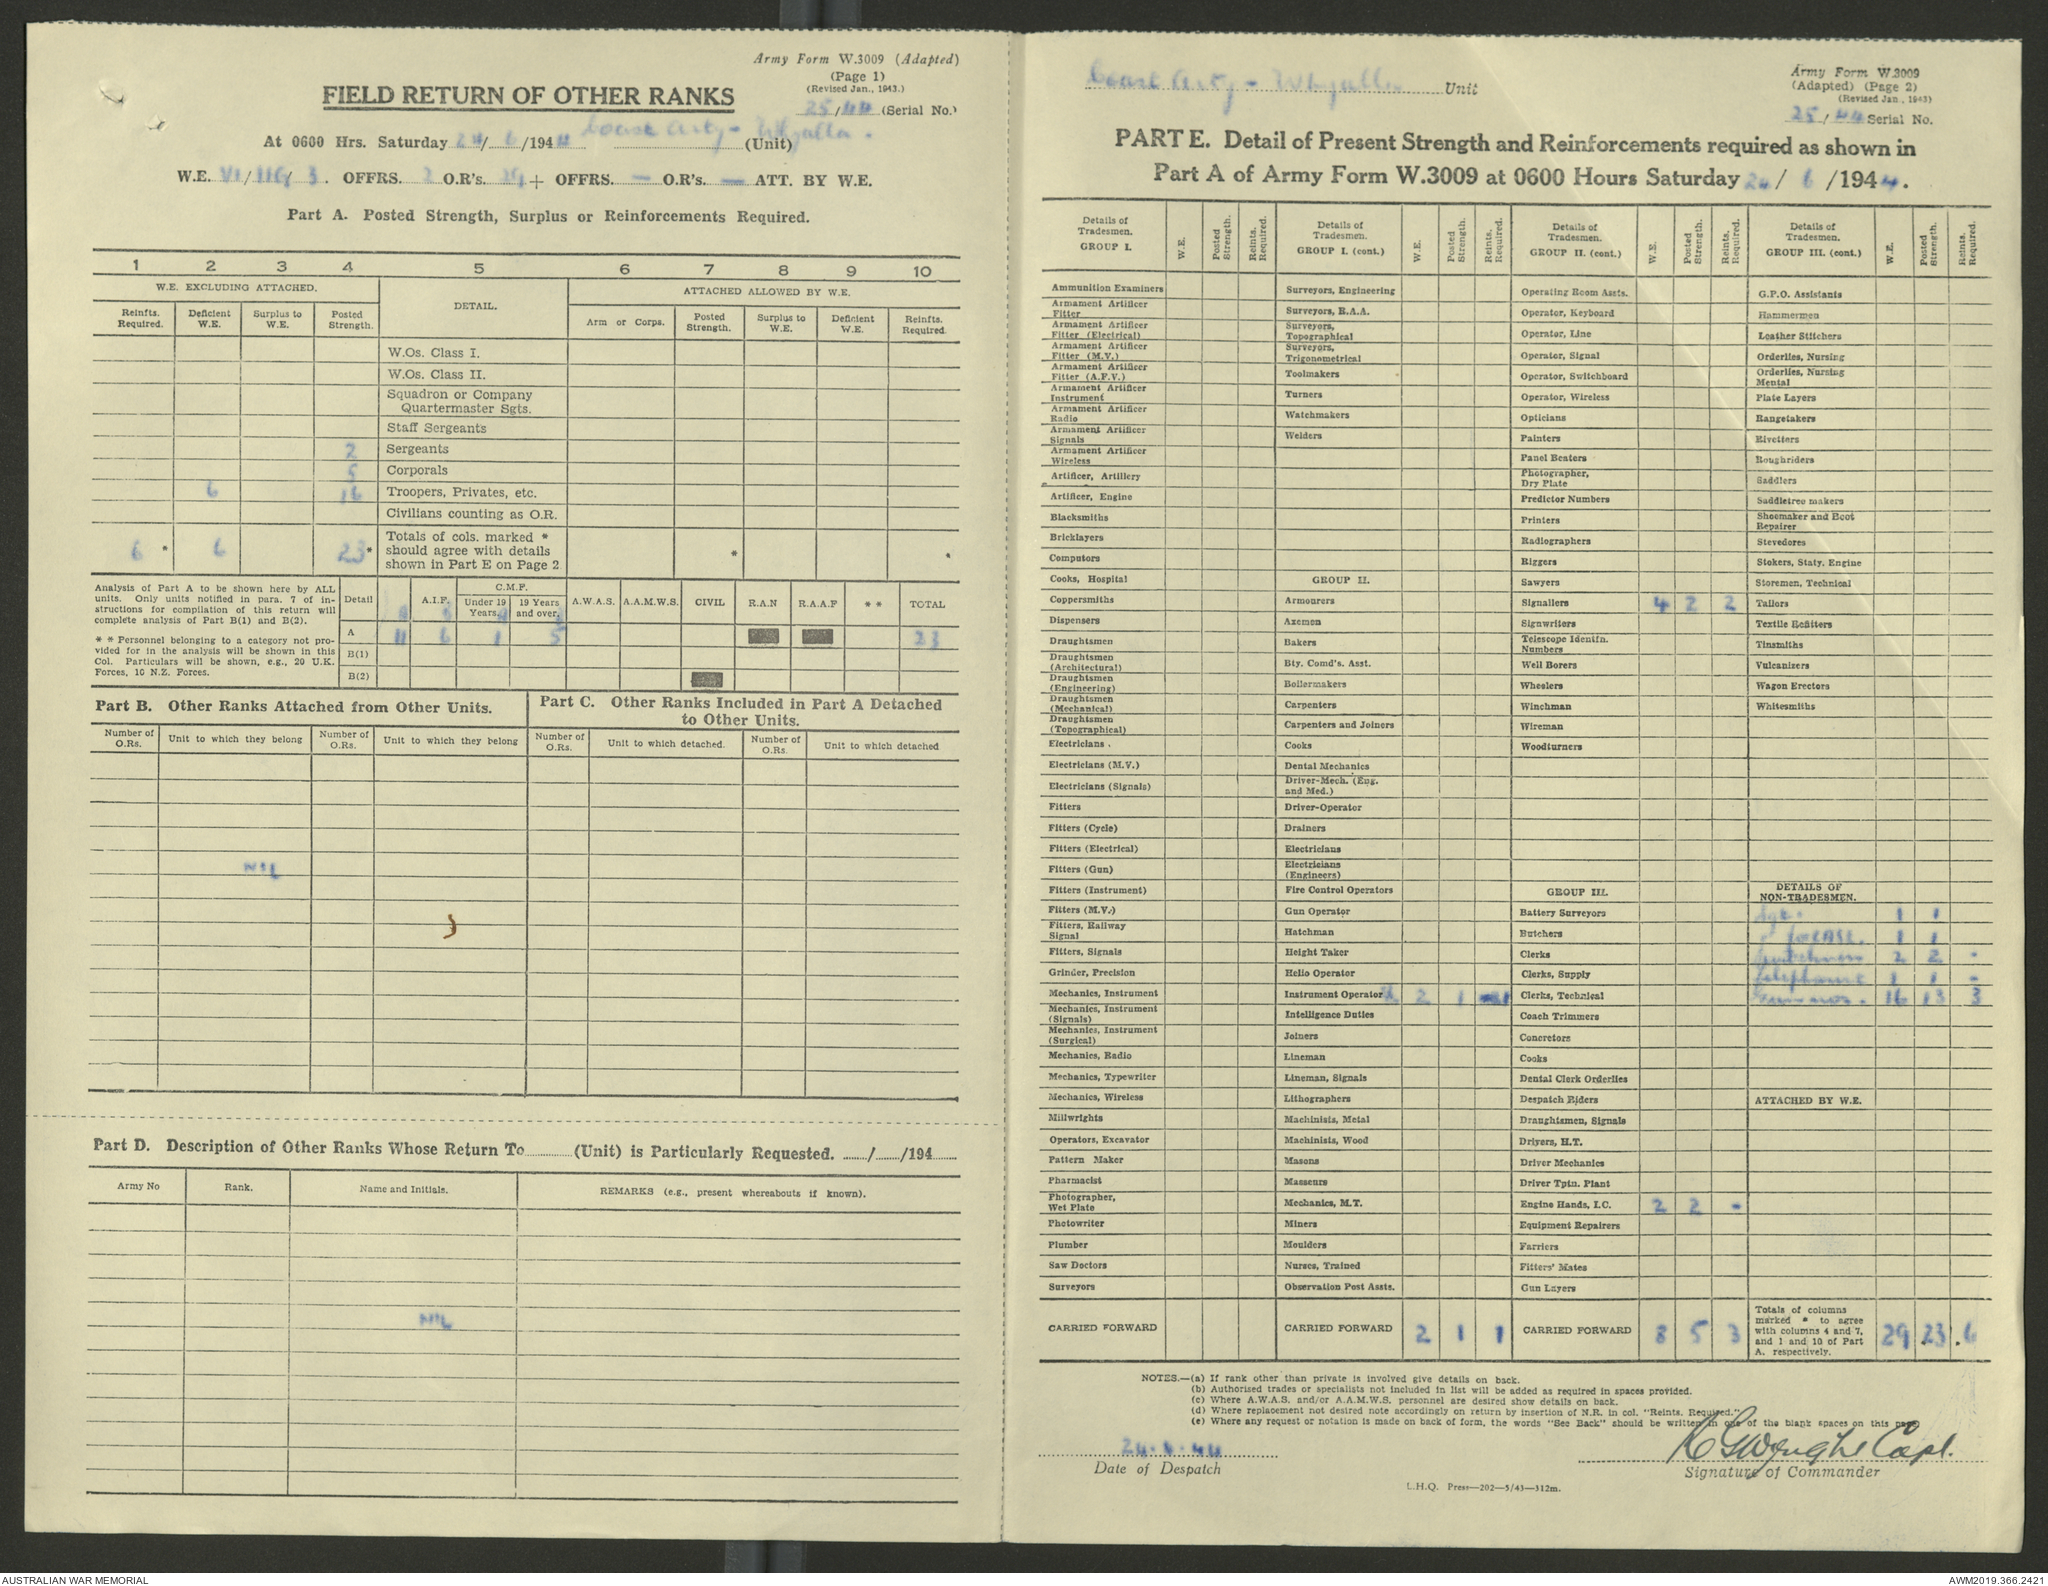 Army Form W.3009 (Adapted)
(Page 1)
(Revised Jan., 1943.)
FIELD RETURN OF OTHER RANKS
25/44 (Serial No.)
At 0600 Hrs. Saturday 24/6/1944 Coast Arty - Whyalla. (Unit)
W.E. VI/116/3. OFFRS. 2 O.R's. 29 + OFFRS. — O.R's. — ATT. BY W.E.
Part A. Posted Strength, Surplus or Reinforcements Required.
1 2 3 4 5 6 7 8 9 10
W.E. EXCLUDING ATTACHED. DETAIL. ATTACHED ALLOWED BY W.E.
Reinfts. Required. Deficient W.E. Surplus to W.E. Posted Strength. Arm or Corps. Posted Strength. Surplus to W.E. Deficient W.E. Reinfts. Required.
W.Os. Class I.
W.Os. Class II.
Squadron or Company Quartermaster Sgts.
Staff Sergeants
2 Sergeants
5 Corporals
6 16 Troopers, Privates, etc.
Civilians counting as O.R.
6 * 6 23 * Totals of cols. marked * should agree with details shown in Part E on Page 2 * *
Analysis of Part A to be shown here by ALL units. Only units notified in para. 7 of instructions for compilation of this return will complete analysis of Part B(1) and B(2).
* * Personnel belonging to a category not provided for in the analysis will be shown in this Col. Particulars will be shown, e.g., 20 U.K. Forces, 10 N.Z. Forces.
Detail A.I.F. C.M.F. Under 19 Years. 19 Years and over. A.W.A.S. A.A.M.W.S. CIVIL R.A.N R.A.A.F * * TOTAL
A 11 6 1 5 23
B(1)
B(2)
Part B. Other Ranks Attached from Other Units.
Number of O.Rs. Unit to which they belong Number of O.Rs. Unit to which they belong
NIL
Part C. Other Ranks Included in Part A Detached to Other Units.
Number of O.Rs. Unit to which detached. Number of O.Rs. Unit to which detached
Part D. Description of Other Ranks Whose Return To ......... (Unit) is Particularly Requested. ....../....../194......
Army No Rank. Name and Initials. REMARKS (e.g., present whereabouts if known).
NIL
Coast Arty - Whyalla Unit
Army Form W.3009
(Adapted) (Page 2)
(Revised Jan., 1943)
25/44 Serial No.
PART E. Detail of Present Strength and Reinforcements required as shown in
Part A of Army Form W.3009 at 0600 Hours Saturday 24/6/1944.
Details of Tradesmen. GROUP I. W.E. Posted Strength. Reints. Required.
Ammunition Examiners
Armament Artificer Fitter
Armament Artificer Fitter (Electrical)
Armament Artificer Fitter (M.V.)
Armament Artificer Fitter (A.F.V.)
Armament Artificer Instrument
Armament Artificer Radio
Armament Artificer Signals
Armament Artificer Wireless
Artificer, Artillery
Artificer, Engine
Blacksmiths
Bricklayers
Computors
Cooks, Hospital
Coppersmiths
Dispensers
Draughtsmen
Draughtsmen (Architectural)
Draughtsmen (Engineering)
Draughtsmen (Mechanical)
Draughtsmen (Topographical)
Electricians .
Electricians (M.V.)
Electricians (Signals)
Fitters
Fitters (Cycle)
Fitters (Electrical)
Fitters (Gun)
Fitters (Instrument)
Fitters (M.V.)
Fitters, Railway Signal
Fitters, Signals
Grinder, Precision
Mechanics, Instrument
Mechanics, Instrument (Signals)
Mechanics, Instrument (Surgical)
Mechanics, Radio
Mechanics, Typewriter
Mechanics, Wireless
Millwrights
Operators, Excavator
Pattern Maker
Pharmacist
Photographer, Wet Plate
Photowriter
Plumber
Saw Doctors
Surveyors
CARRIED FORWARD
Details of Tradesmen. GROUP I. (cont.) W.E. Posted Strength. Reints. Required.
Surveyors, Engineering
Surveyors, R.A.A.
Surveyors, Topographical
Surveyors, Trigonometrical
Toolmakers
Turners
Watchmakers
Welders
GROUP II.
Armourers
Axemen
Bakers
Bty. Comd's. Asst.
Boilermakers
Carpenters
Carpenters and Joiners
Cooks
Dental Mechanics
Driver-Mech. (Eng. and Med.)
Driver-Operator
Drainers
Electricians
Electricians (Engineers)
Fire Control Operators
Gun Operator
Hatchman
Height Taker
Helio Operator
Instrument Operator 2 1 1
Intelligence Duties
Joiners
Lineman
Lineman, Signals
Lithographers
Machinists, Metal
Machinists, Wood
Masons
Masseurs
Mechanics, M.T.
Miners
Moulders
Nurses, Trained
Observation Post Assts.
CARRIED FORWARD 2 1 1
Details of Tradesmen. GROUP II. (cont.) W.E. Posted Strength. Reints. Required.
Operating Room Assts.
Operator, Keyboard
Operator, Line
Operator, Signal
Operator, Switchboard
Operator, Wireless
Opticians
Painters
Panel Beaters
Photographer, Dry Plate
Predictor Numbers
Printers
Radiographers
Riggers
Sawyers
Signallers 4 2 2
Signwriters
Telescope Identfn. Numbers
Well Borers
Wheelers
Winchman
Wireman
Woodturners
GROUP III.
Battery Surveyors
Butchers
Clerks
Clerks, Supply
Clerks, Technical
Coach Trimmers
Concretors
Cooks
Dental Clerk Orderlies
Despatch Riders
Draughtsmen, Signals
Drivers, H.T.
Driver Mechanics
Driver Tptn. Plant
Engine Hands, I.C. 2 2 -
Equipment Repairers
Farriers
Fitters' Mates
Gun Layers
CARRIED FORWARD 8 5 3
Details of Tradesmen. GROUP III. (cont.) W.E. Posted Strength. Reints. Required.
G.P.O. Assistants
Hammermen
Leather Stitchers
Orderlies, Nursing
Orderlies, Nursing Mental
Plate Layers
Rangetakers
Rivetters
Roughriders
Saddlers
Saddletree makers
Shoemaker and Boot Repairer
Stevedores
Stokers, Staty. Engine
Storemen, Technical
Tailors
Textile Refitters
Tinsmiths
Vulcanizers
Wagon Erectors
Whitesmiths
DETAILS OF NON-TRADESMEN.
Sgt. 1 1
1 1
2 2 -
1 1 -
Gunners. 16 13 3
ATTACHED BY W.E.
Totals of columns marked * to agree with columns 4 and 7, and 1 and 10 of Part A. respectively. 29 23 6
NOTES.—(a) If rank other than private is involved give details on back.
(b) Authorised trades or specialists not included in list will be added as required in spaces provided.
(c) Where A.W.A.S. and/or A.A.M.W.S. personnel are desired show details on back.
(d) Where replacement not desired note accordingly on return by insertion of N.R. in col. "Reints. Required."
(e) Where any request or notation is made on back of form, the words "See Back" should be written in one of the blank spaces on this page
24.6.44
Date of Despatch
Capt.
Signature of Commander
L.H.Q. Press—202—5/43—312m.
AUSTRALIAN WAR MEMORIAL
AWM2019.366.2421